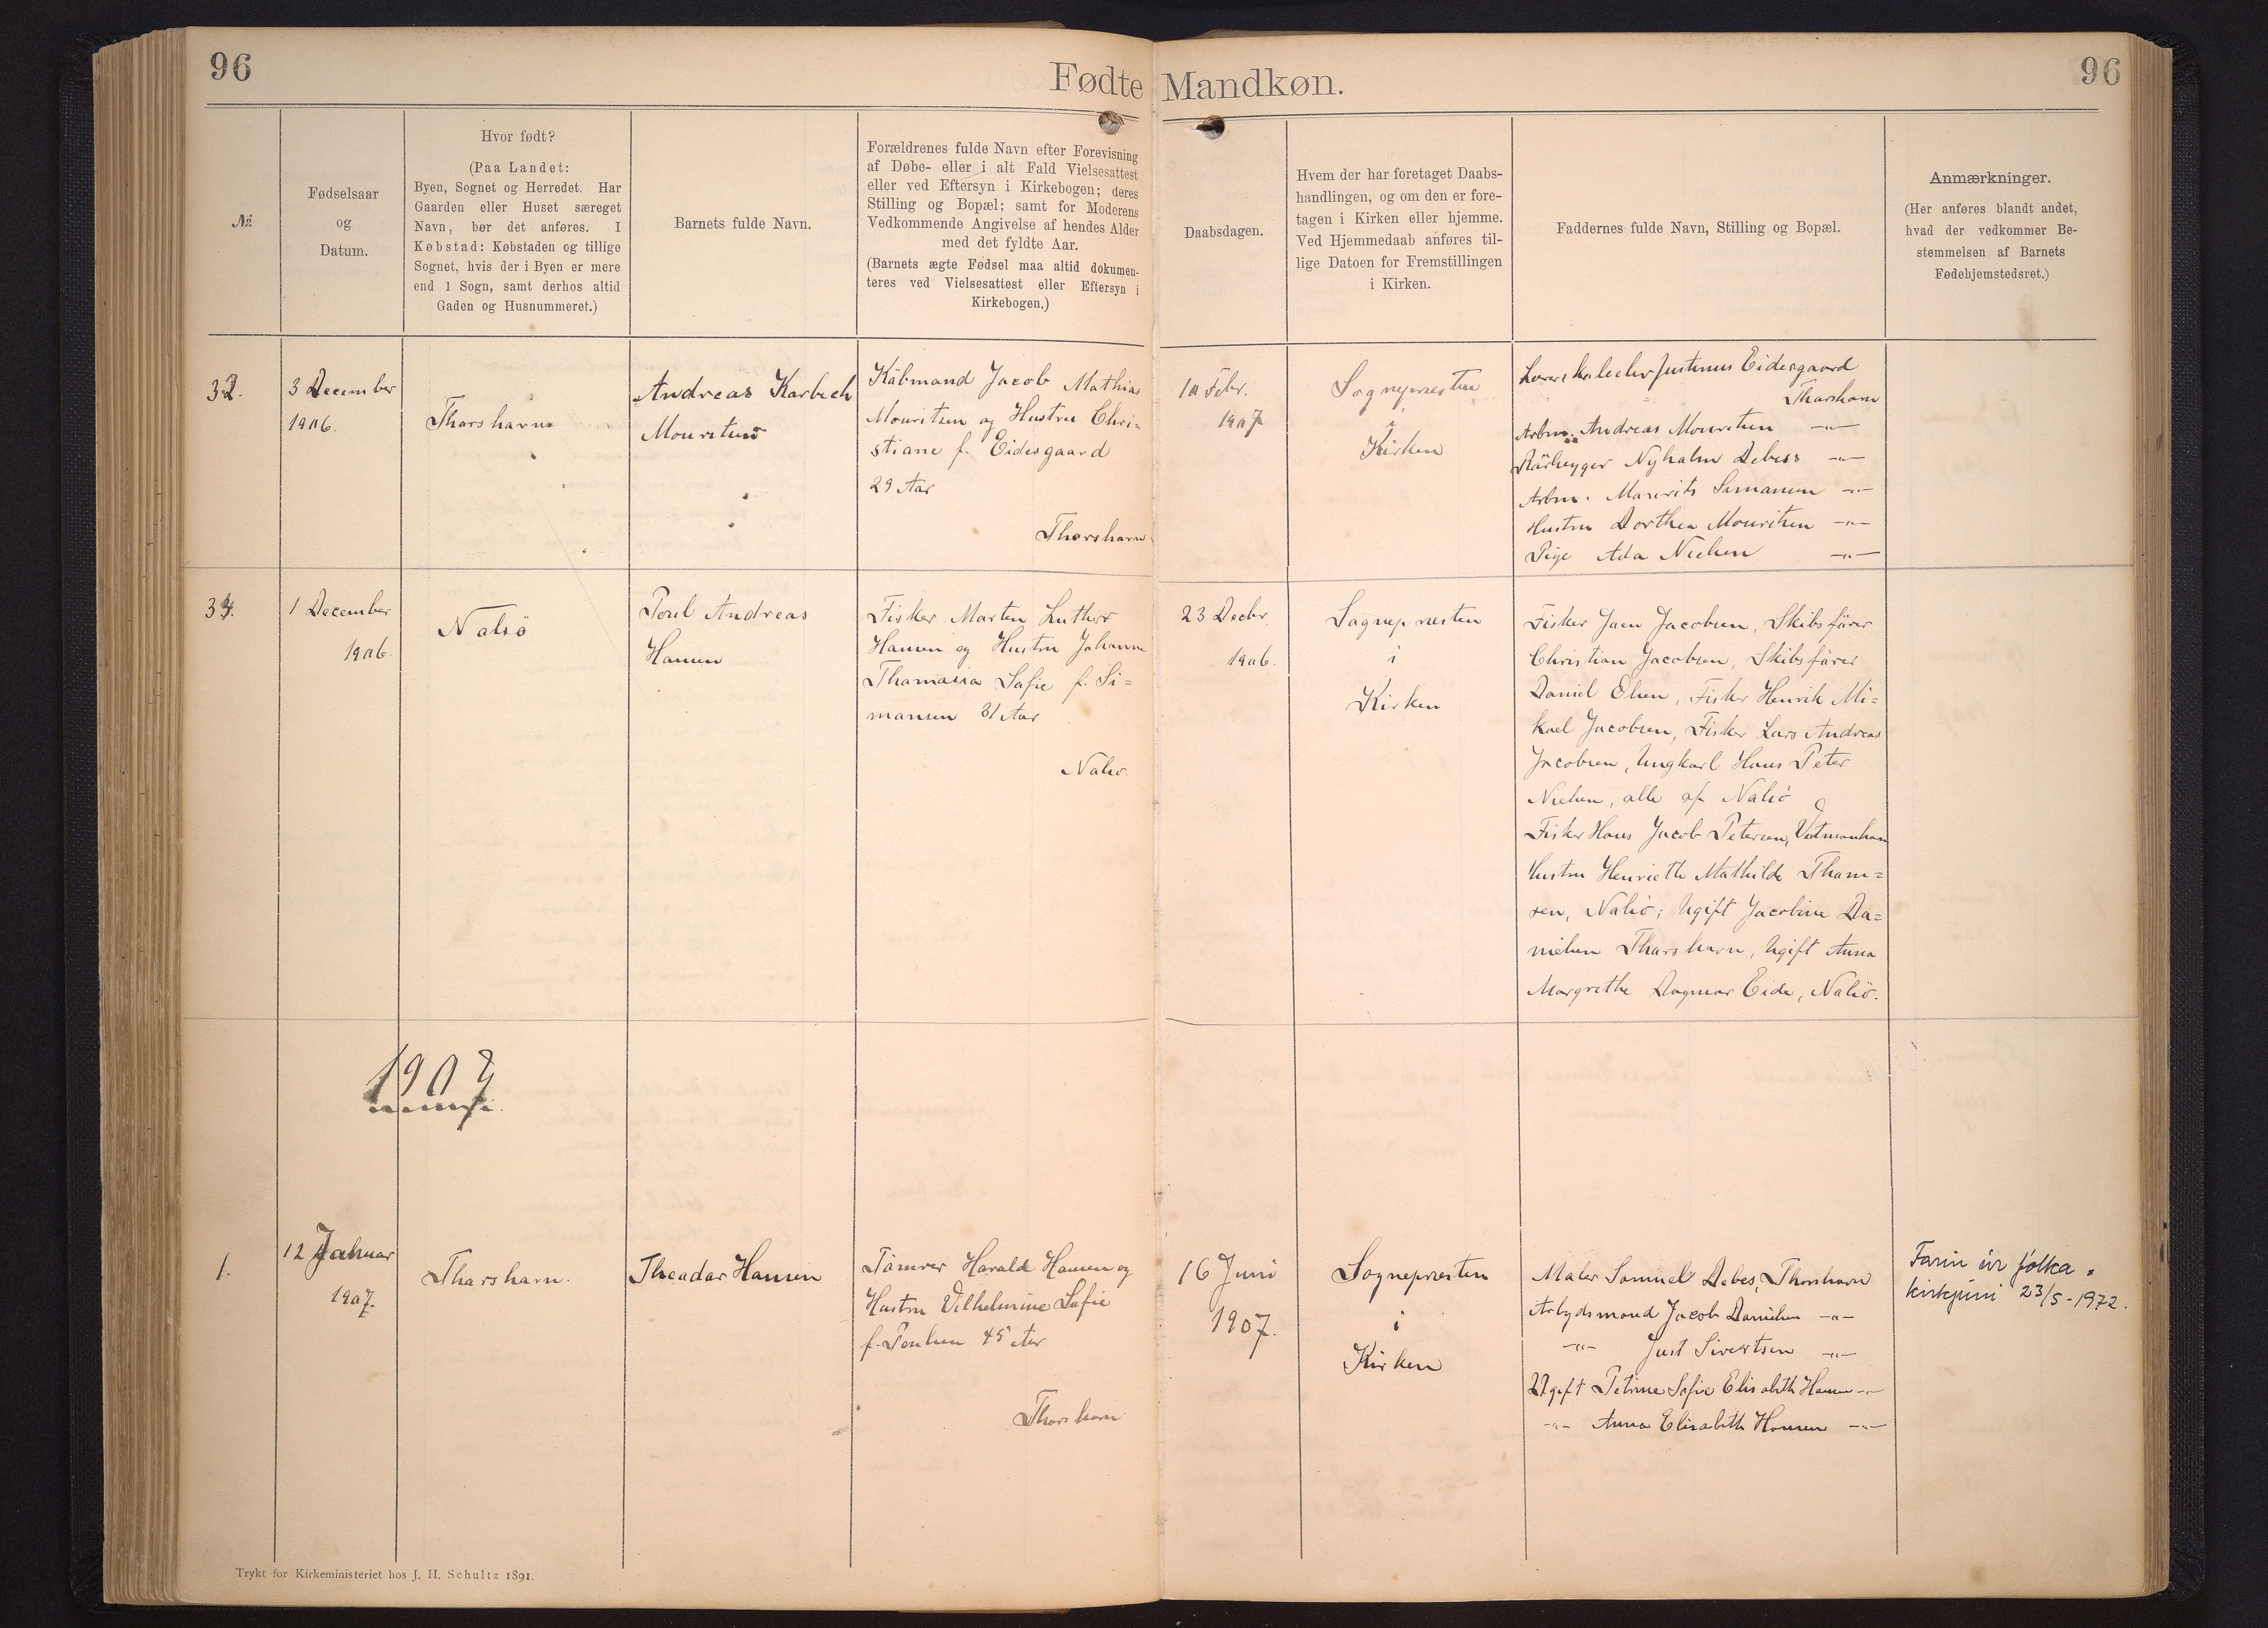 96
Fødte Mandkøn.
96
№
Fødselsaar
og
Datum.
Hvor født?
(Paa Landet:
Byen, Sognet og Herredet. Har
Gaarden eller Huset særeget
Navn, bør det anføres. I
Købstad: Købstaden og tillige
Sognet, hvis der i Byen er mere
end 1 Sogn, samt derhos altid
Gaden og Husnummeret.)
Barnets fulde Navn.
Forældrenes fulde Navn efter Forevisning
af Døbe- eller i alt Fald Vielsesattest
eller ved Eftersyn i Kirkebogen; deres
Stilling og Bopæl; samt for Moderens
Vedkommende Angivelse af hendes Alder
med det fyldte Aar.
(Barnets ægte Fødsel maa altid dokumen-
teres ved Vielsesattest eller Eftersyn i
Kirkebogen.)
Daabsdagen.
Hvem der har foretaget Daabs-
handlingen, og om den er fore-
tagen i Kirken eller hjemme.
Ved Hjemmedaab anføres til-
lige Datoen for Fremstillingen
i Kirken.
Faddernes fulde Navn, Stilling og Bopæl.
Anmærkninger.
(Her anføres blandt andet,
hvad der vedkommer Be-
stemmelsen af Barnets
Fødehjemstedsret.)
3 December
1906.
Thorshavn
Andreas Karbech
Mouritsen
Købmand Jacob Mathias
Mouritsen og Hustru Chri=
stiane f. Eidesgaard
29 Aar
Thorshavn
10 Febr.
1907
Sognepræsten
i
Kirken
Justinus Eidesgaard
Thorshavn
Arbm. Andreas Mouritsen -"-
Nyholm Debess -"-
Arbm. Mourits Simonsen -"-
Hustru Dorthea Mouritsen -"-
Pige Ada Nielsen -"-
1 December
1906.
Nolsö
Poul Andreas
Hansen
Fisker Morten Luther
Hansen og Hustru Johanne
Thomasia Sofie f. Si=
monsen 31 Aar
Nolsö.
23 Decbr.
1906.
Sognepræsten
i
Kirken
Fisker Joen Jacobsen, Skibsfører
Christian Jacobsen, Skibsfører
Daniel Olsen, Fisker Henrik Mi=
kael Jacobsen, Fisker Lars Andreas
Jacobsen, Ungkarl Hans Peter
Nielsen, alle af Nolsö
Fisker Hans Jacob Petersen, Vestmanhavn
Hustru Henriette Mathilde Thom=
sen, Nolsö; Ugift Jacobine Da=
nielsen Thorshavn, Ugift Anna
Margrethe Dagmar Eide, Nolsö.
1907
1.
12 Januar
1907.
Thorshavn.
Theodor Hansen
Tömrer Harald Hansen og
Hustru Vilhelmine Sofie
f. Poulsen 45 Aar
Thorshavn
16 Juni
1907.
Sognepræsten
i
Kirken
Maler Samuel Debes, Thorshavn
Arbejdsmand Jacob Danielsen -"-
-"- Just Sivertsen -"-
Ugift Petrine Sofie Elisabeth Hansen -"-
-"- Anna Elisabeth Hansen -"-
Farin úr fólka=
kirkjuni 23/5-1972.
Trykt for Kirkeministeriet hos J. H. Schultz 1891.